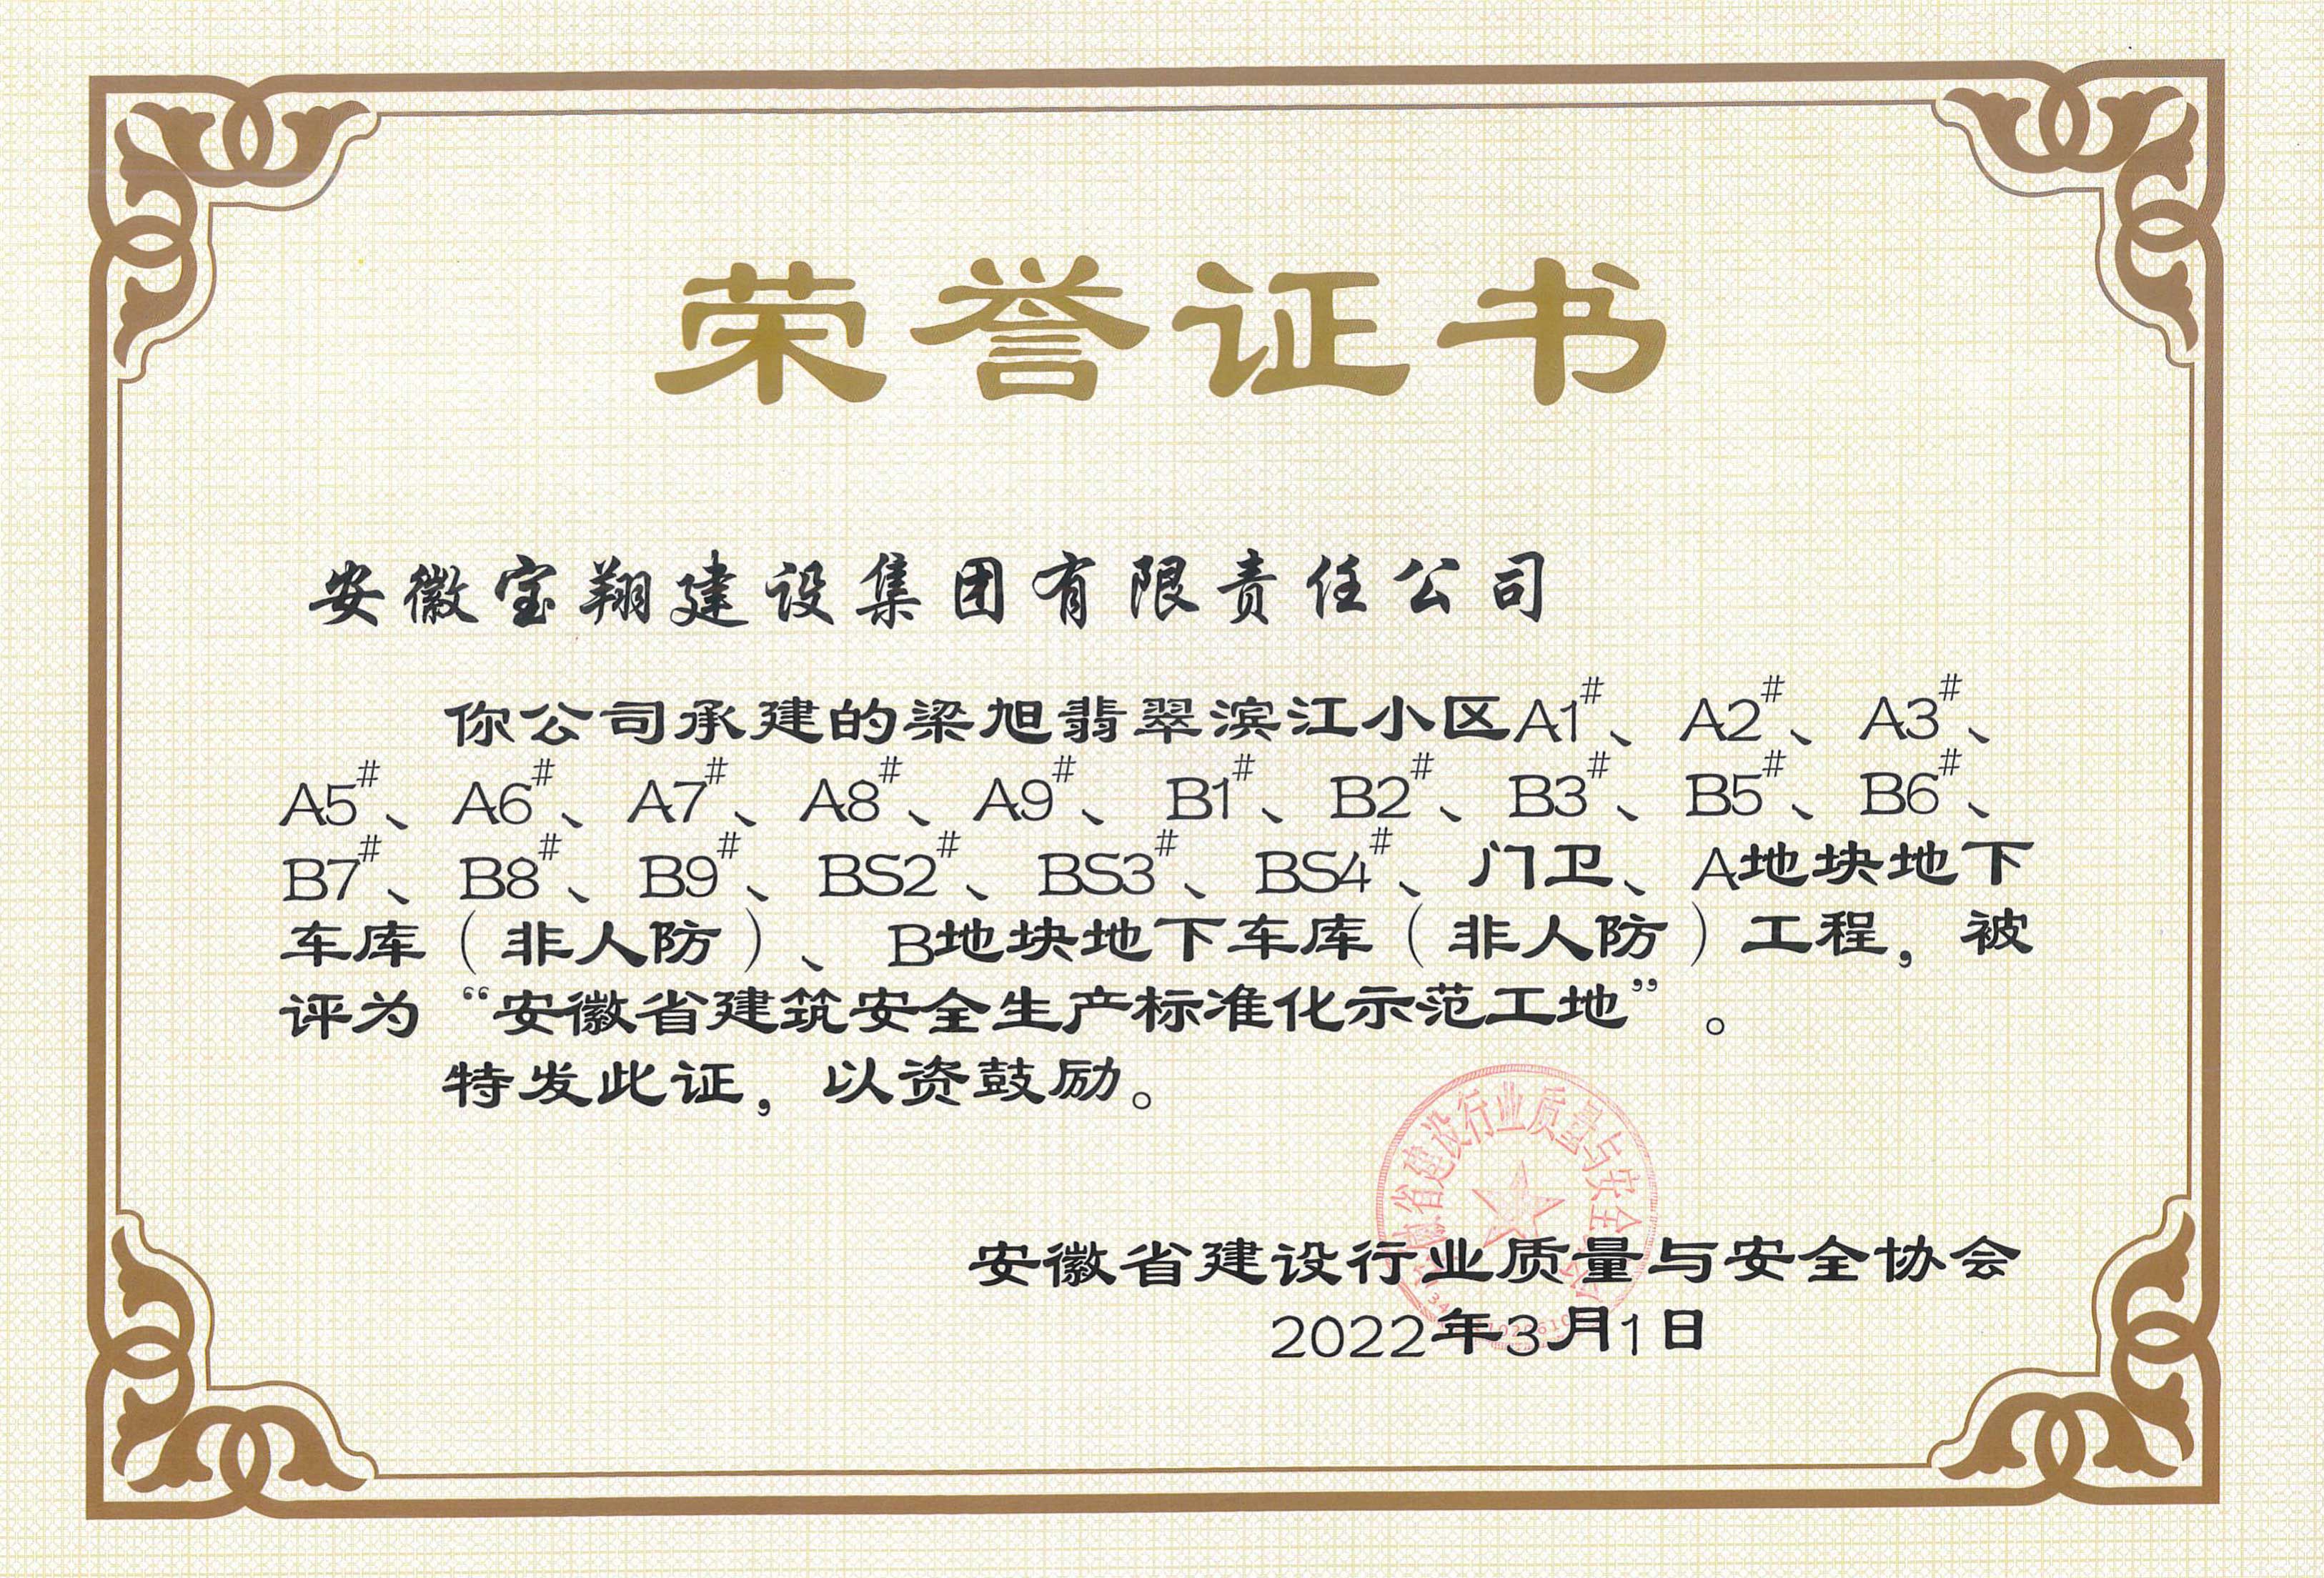 荣誉证书
安徽宝翔建设集团有限责任公司
你公司承建的梁旭翡翠滨江小区A1#、A2#、A3#、
A5#、A6#、A7#、A8#、A9#、B1#、B2#、B3#、B5#、B6#、
B7#、B8#、B9#、BS2#、BS3#、BS4#、门卫、A地块地下
车库（非人防）、B地块地下车库（非人防）工程，被
评为“安徽省建筑安全生产标准化示范工地”。
特发此证，以资鼓励。
省建设行业质量与安全
安徽省建设行业质量与安全协会
2022年3月1日